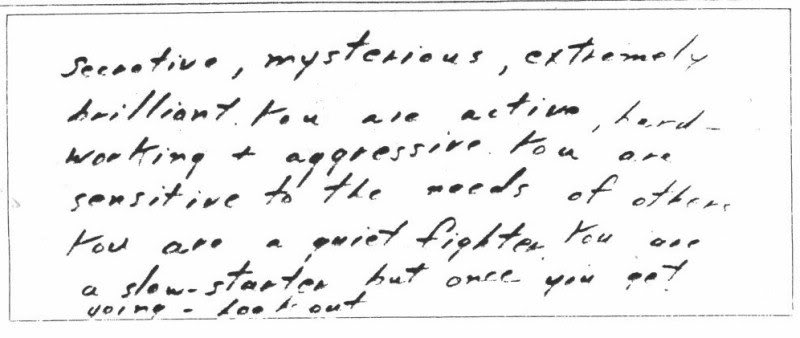 secretive, mysterious, extremely
brilliant. You are active, hard-
working + aggressive. You are
sensitive to the needs of others
You are a quiet fighter. You are
a slow-starter but once you get
going - look out